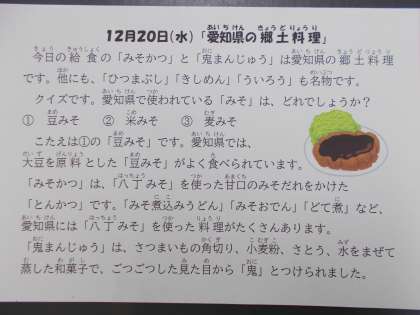 12月20日(水)「愛知県の郷土料理」
今日の給食の「みそかつ」と「鬼まんじゅう」は愛知県の郷土料理
です。他にも、「ひつまぶし」「きしめん」「ういろう」も名物です。
クイズです。愛知県で使われている「みそ」は、どれでしょうか?
① 豆みそ ② 米みそ ③ 麦みそ
こたえは①の「豆みそ」です。愛知県では、
大豆を原料とした「豆みそ」がよく食べられています。
「みそかつ」は、「八丁みそ」を使った甘口のみそだれをかけた
「とんかつ」です。「みそ煮込みうどん」「みそおでん」「どて煮」など、
愛知県には「八丁みそ」を使った料理がたくさんあります。
「鬼まんじゅう」は、さつまいもの角切り、小麦粉、さとう、水をまぜて
蒸した和菓子で、ごつごつした見た目から「鬼」とつけられました。